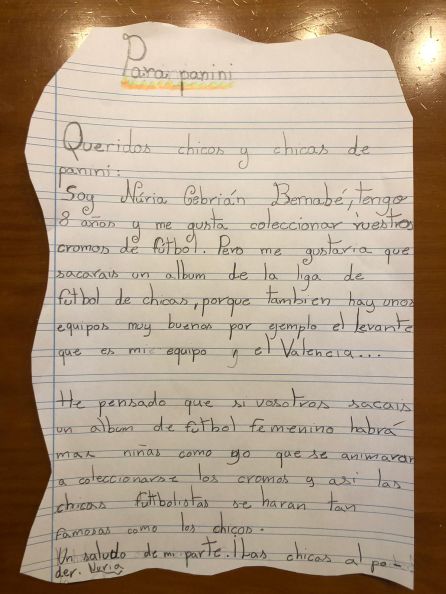 Para panini
Queridos chicos y chicas de
panini:
Soy Núria Cebrián Bernabé, tengo
8 años y me gusta coleccionar vuestros
cromos de fútbol. Pero me gustaria que
sacarais un album de la liga de
futbol de chicas, porque tambien hay unos
equipos muy buenos por ejemplo el Levante
que es mi equipo y el Valencia...
He pensado que si vosotros sacais
un album de futbol femenino habrá
mas niñas como yo que se animaran
a coleccionarse los cromos y asi las
chicas futbolistas se haran tan
famosas como los chicos.
Un saludo de mi parte. ¡Las chicas al po-
der. Nuria